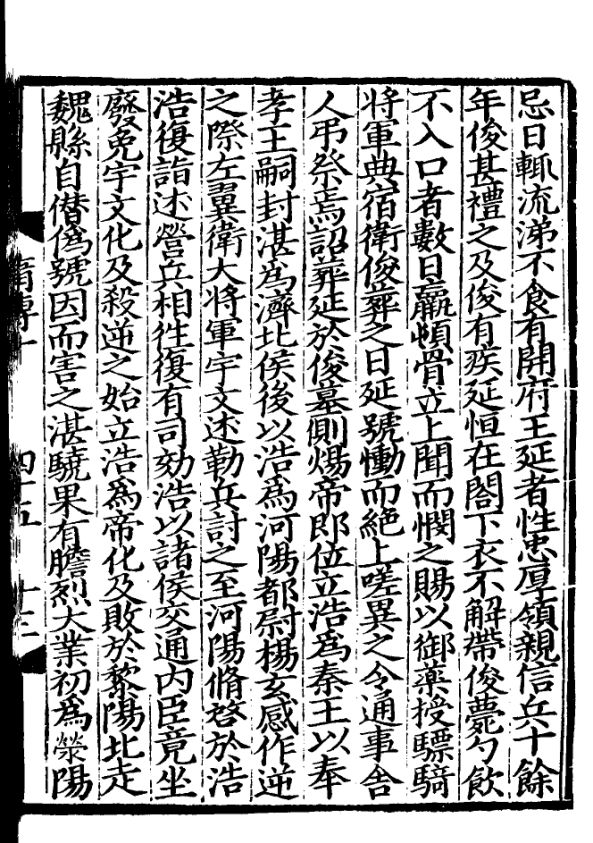 忌日輒流涕不食有開府王延者性忠厚領親信兵十餘
年俊甚禮之及俊有疾延恒在閤下衣不解帶俊薨勺飲
不入口者數日羸頓骨立上聞而憫之賜以御藥授驃騎
將軍典宿衛俊葬之日延號慟而絶上嗟異之令通事舍
人弔祭焉詔葬延於俊墓側煬帝即位立浩為秦王以奉
孝王嗣封湛為濟北侯後以浩為河陽都尉楊玄感作逆
之際左翊衛大將軍宇文述勒兵討之至河陽脩啓於浩
浩復詣述營兵相往復有司劾浩以諸侯交通内臣竟坐
廢免宇文化及殺逆之始立浩為帝化及敗於黎陽北走
魏縣自僣偽號因而害之湛驍果有膽烈大業初為滎陽
四十五